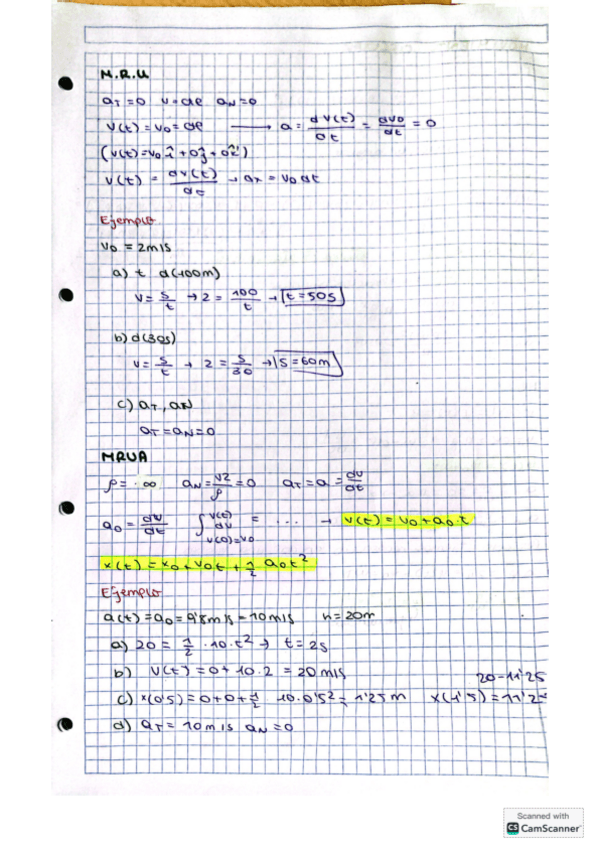 M.R.U
aT=0 v=cte aN=0
v(t) = v0 = cte → a = dv(t)/dt = dv0/dt = 0
(v(t)=v0 i + 0j + 0k)
v(t) = dv(t)/dt → ax = v0 dt
Ejemplo
v0 = 2m/s
a) t d(100m)
v = s/t → 2 = 100/t → t = 50s
b) d(30s)
v = s/t → 2 = s/30 → s = 60m
c) aT, aN
aT = aN = 0
MRUA
ρ = ∞ aN = v2/ρ = 0 aT = a = dv/dt
a0 = dv/dt ∫ v(t) dv v(0)=v0 = ... → v(t) = v0 + a0·t
x(t) = x0 + v0t + 1/2 a0t²
Ejemplo
a(t) = a0 = 9'8m/s = 10m/s h = 20m
a) 20 = 1/2 · 10 · t² → t = 2s
b) v(t) = 0 + 10·2 = 20 m/s
20 - 11'25
c) x(0'5) = 0+0+1/2 10·0'5² = 1'25m x(1'5) = 11'25
d) aT = 10m/s aN = 0
Scanned with
CS CamScanner